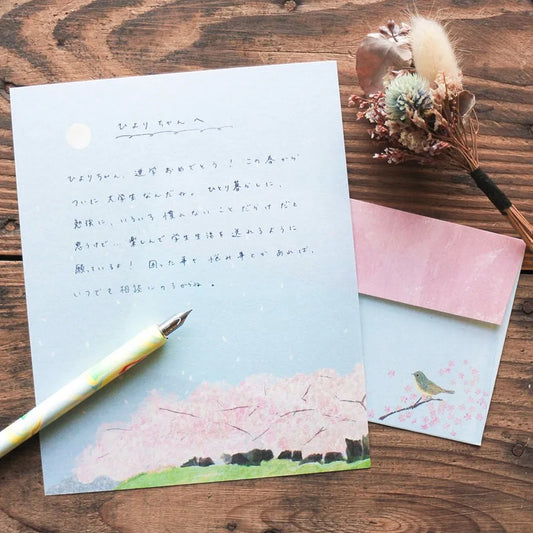 ひよりちゃんへ
ひよりちゃん、進学おめでとう！この春から
ついに大学生なんだね。ひとり暮らしに、
勉強に、いろいろ慣れないことだらけだと
思うけど…楽しんで学生生活を送れるように
願っているよ！困った事や悩み事とかあれば、
いつでも相談にのるからね。